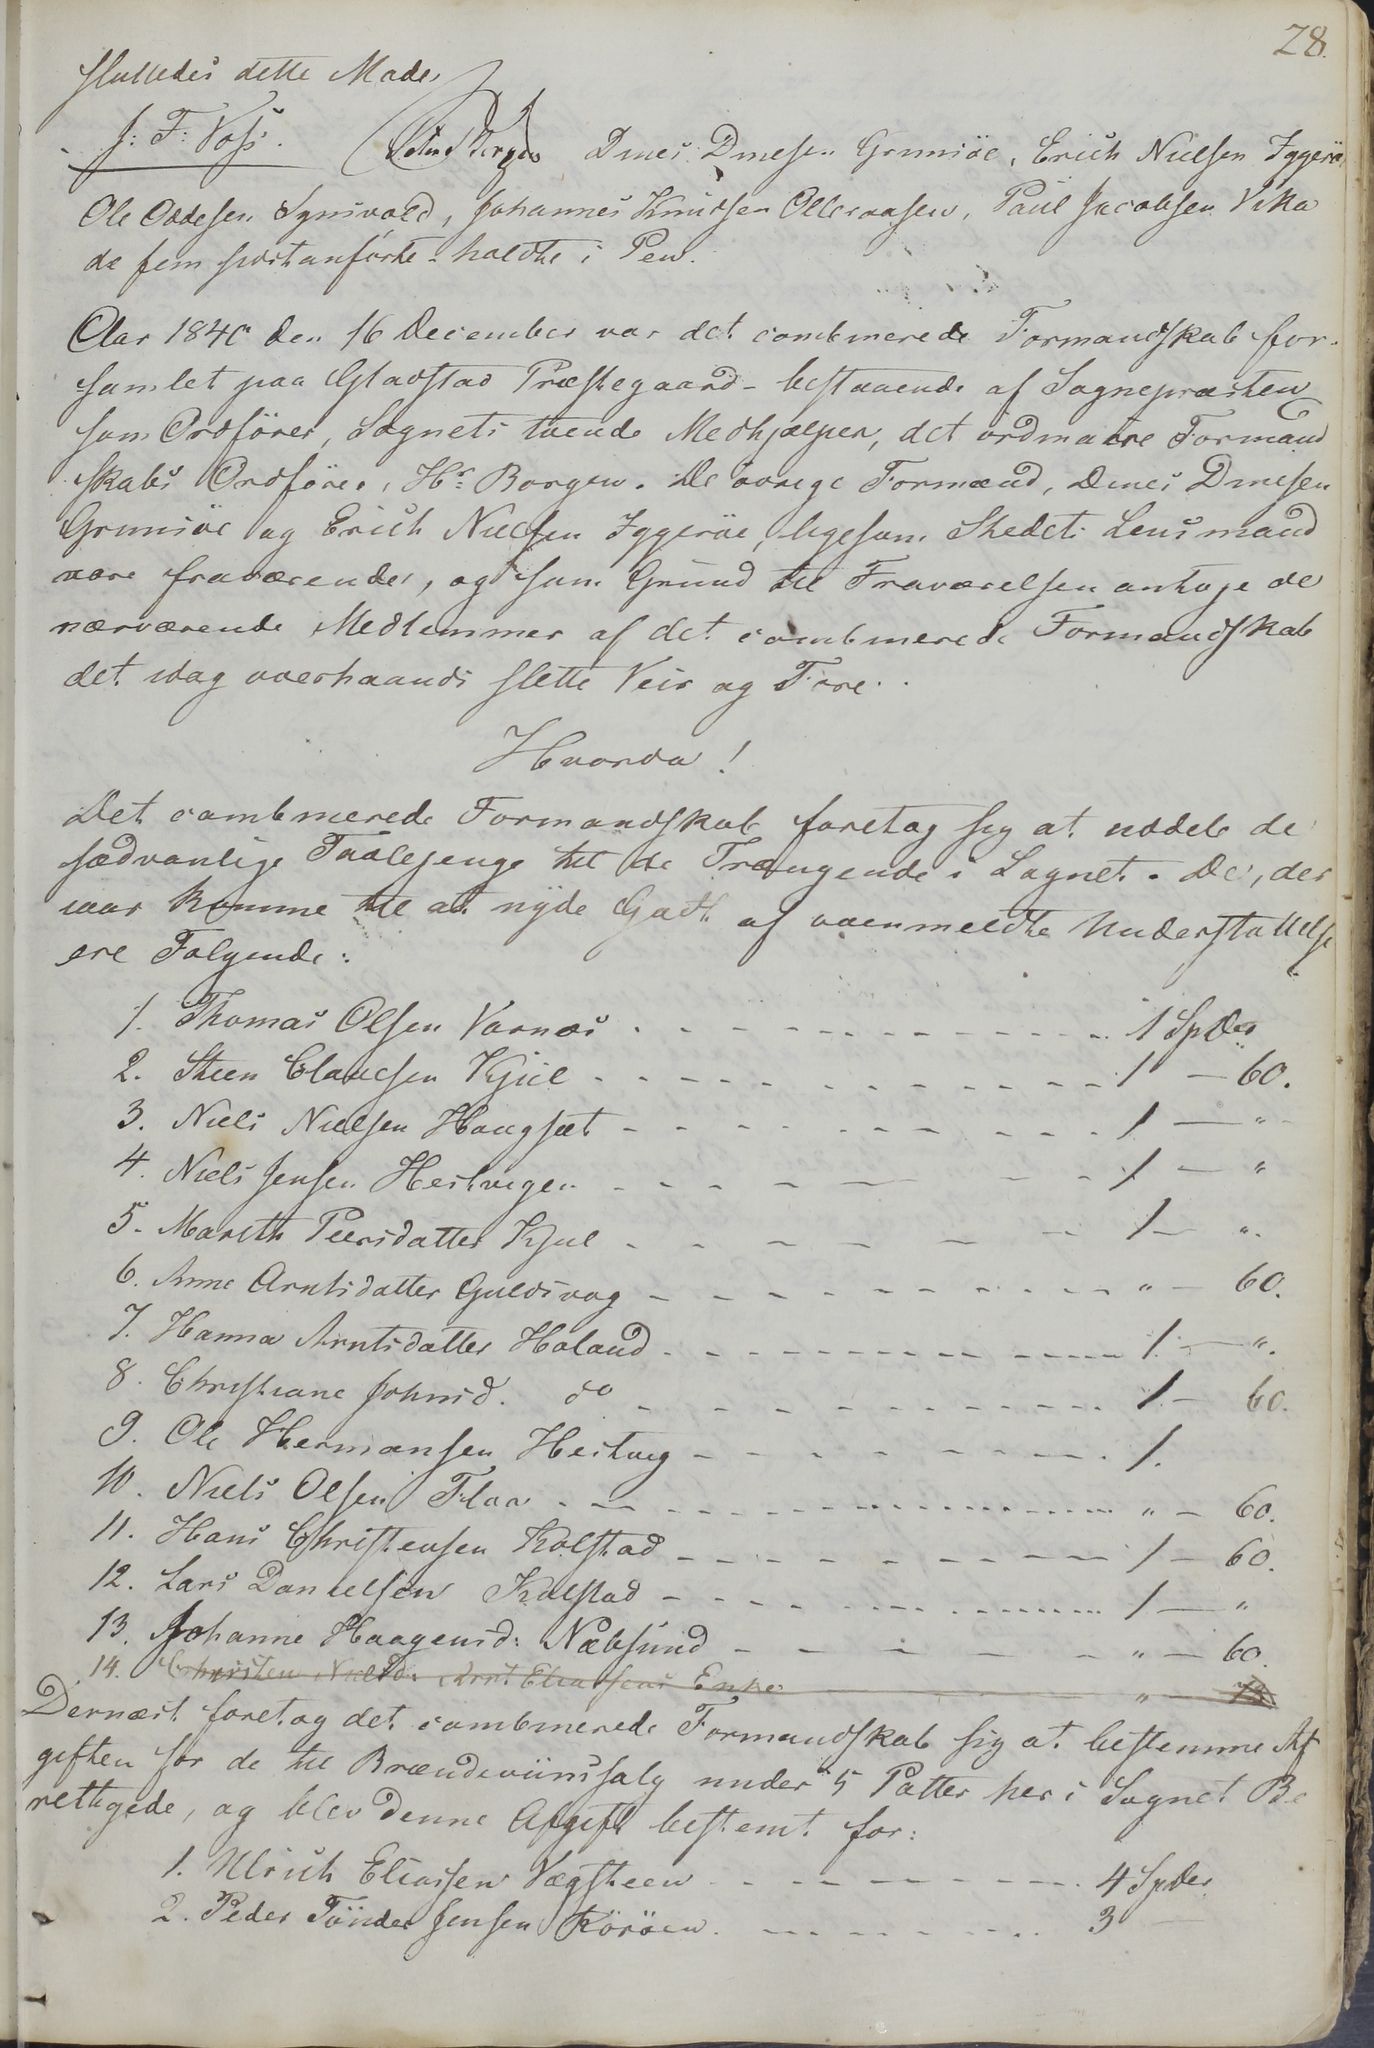 28.
sluttedes dette Møde,
J: F: Voss. Dines Dinesen Grimsöe, Erich Nielsen Iggeröe
Ole Oddesen Synsvold, Johannes Knudsen Olleraasen, Paul Jacobsen Vika
de fem sidstanförte holdte i Pen.
Aar 1840 den 16 December var det combinerede Formandskab for-
samlet paa Gladstad Præstegaard - bestaaende af Sognepræsten
som Ordförer, Sognets tvende Medhjælper, det ordinaire Formand
skabs Ordförer, Hr: Borgen. De övrige Formænd, Dines Dinesen
Grimsöe og Erich Nielsen Iggeröe, ligesom Stedets Lensmand
vare fraværende, og som Grund til Fraværelsen antoge de
nærværende Medlemmer af det combinerede Formandskab
det idag overhaands slette Veir og Före.
Hvorda!
Det combinerede Formandskab foretog sig at uddele de
sædvanlige Taalepenge til de Trængende i Sognet. De, der
iaar komme til at nyde Godt af ovenmeldte Understöttelse
ere Fölgende:
1. Thomas Olsen Vornæs - - - 1 SpDr
2. Steen Clausen Kjul - - - 1 - 60.
3. Niels Nielsen Haugsæt - - - 1 - "
4. Niels Jensen Hestvigen - - - 1 - "
5. Mareth Peersdatter Kjul - - - 1 - "
6. Anne Arntsdatter Guldsvog - - - " - 60.
7. Hanna Arntsdatter Holand - - - 1 - "
8. Christiane Johnsd. do - - - 1 - 60.
9. Ole Hermansen Hestvig - - - 1.
10. Niels Olsen Flaa - - - " - 60.
11. Hans Christensen Kolstad - - - 1 - 60.
12. Lars Danielsen Kolstad - - - 1 - "
13. Johanne Haagensd: Næbsund - - - " - 60.
14. Christen Nielsd: Arnt Eliassens Enke "
Dernæst foretog det combinerede Formandskab sig at bestemme Af
giften for de til Brændeviinssalg under 5 Potter her i Sognet Be
rettigede, og blev denne Afgift bestemt for:
1. Ulrich Eliassen Vægsteen - - - 4 SpDer
2. Peder Tönder Jensen Köröen - - - 3 -